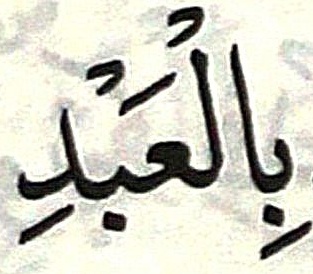 بِالْعَبْدِ